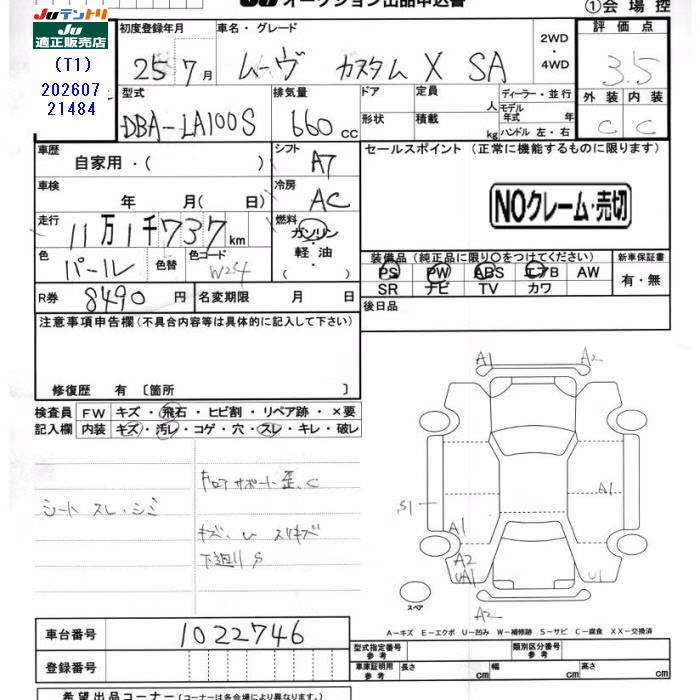 JUテントリ
JU オークション出品申込書 ①会場控
JU
適正販売店
(T1)
202607
21484
初度登録年月 車名・グレード 2WD・4WD 評価点
25 7月 ムーヴ カスタム X SA 3.5
型式 排気量 ドア 定員 人 ディーラー・並行 外装 内装
DBA-LA100S 660 cc 形状 積載 kg モデル年式 年 ハンドル 左・右 C C
車歴 自家用・( ) シフト A7 セールスポイント (正常に機能するものに限ります)
車検 年 月( 日) 冷房 AC
NOクレーム・売切
走行 11万1千737km 燃料 ガソリン・軽油・( )
色 パール 色替 色コード W24
装備品(純正品に限り○をつけてください) 新車保証書
PS PW ABS エアB AW 有・無
SR ナビ TV カワ
R券 8490円 名変期限 月 日 後日品
注意事項申告欄(不具合内容等は具体的に記入して下さい)
修復歴 有 〔箇所 〕
検査員記入欄 FW キズ・飛石・ヒビ割・リペア跡・×要
内装 キズ・汚レ・コゲ・穴・スレ・キレ・破レ
シート スレ・シミ
フロアサポート歪、C
キズ・U スリキズ
下廻り S
A1 A2
A1
S1
A1
A2
UA1 U1
スペア
A2
A-キズ E-エクボ U-凹み W-補修跡 S-サビ C-腐食 XX-交換済
車台番号 1022746
登録番号
型式指定番号 参考 類別区分番号 参考
車庫証明用 参考 長さ cm 幅 cm 高さ cm
希望出品コーナー(コーナーは各会場により異なります。)